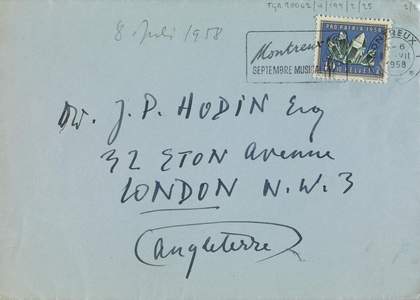 TGA 20062/4/194/2/25
8. Juli 1958
PRO PATRIA 1958
HELVETIA
Montreux
SEPTEMBRE MUSICAL
MONTREUX 1
VII
1958
Dr. J.P. HODIN Esq
32 ETON Avenue
LONDON N.W.3
(Angleterre)